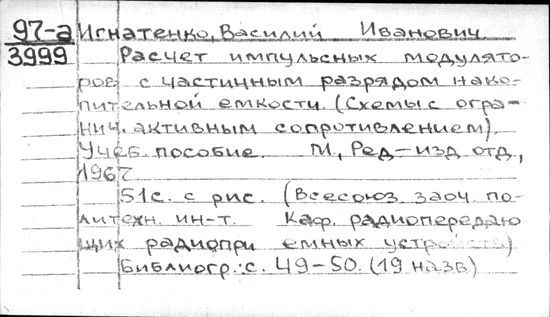 97-а Игнатенко, Василий Иванович.
3999 Расчет импульсных модулято-
ров с частичным разрядом нако-
пительной емкости. (Схемы с огра-
нич. активным сопротивлением).
Учеб. пособие. М., Ред-изд отд.,
1967
51с. с рис. (Всесоюз заоч по-
литехн. ин-т. Каф. радиопередаю
щих радиопри емных устройств)
Библиогр.: с. 49-50. (19 назв)